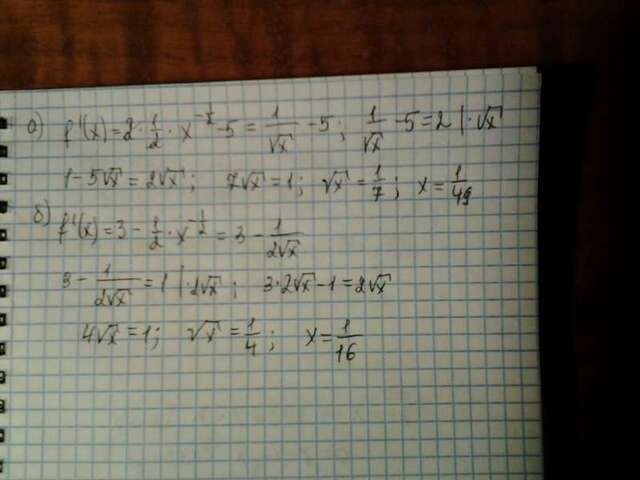 а) f'(x)=2·1/2·x^(-1/2)-5=1/√x-5; 1/√x-5=2 |·√x
1-5√x=2√x; 7√x=1; √x=1/7; x=1/49
б) f'(x)=3-1/2·x^(-1/2)=3-1/(2√x)
3-1/(2√x)=1 |·2√x; 3·2√x-1=2√x
4√x=1; √x=1/4; x=1/16